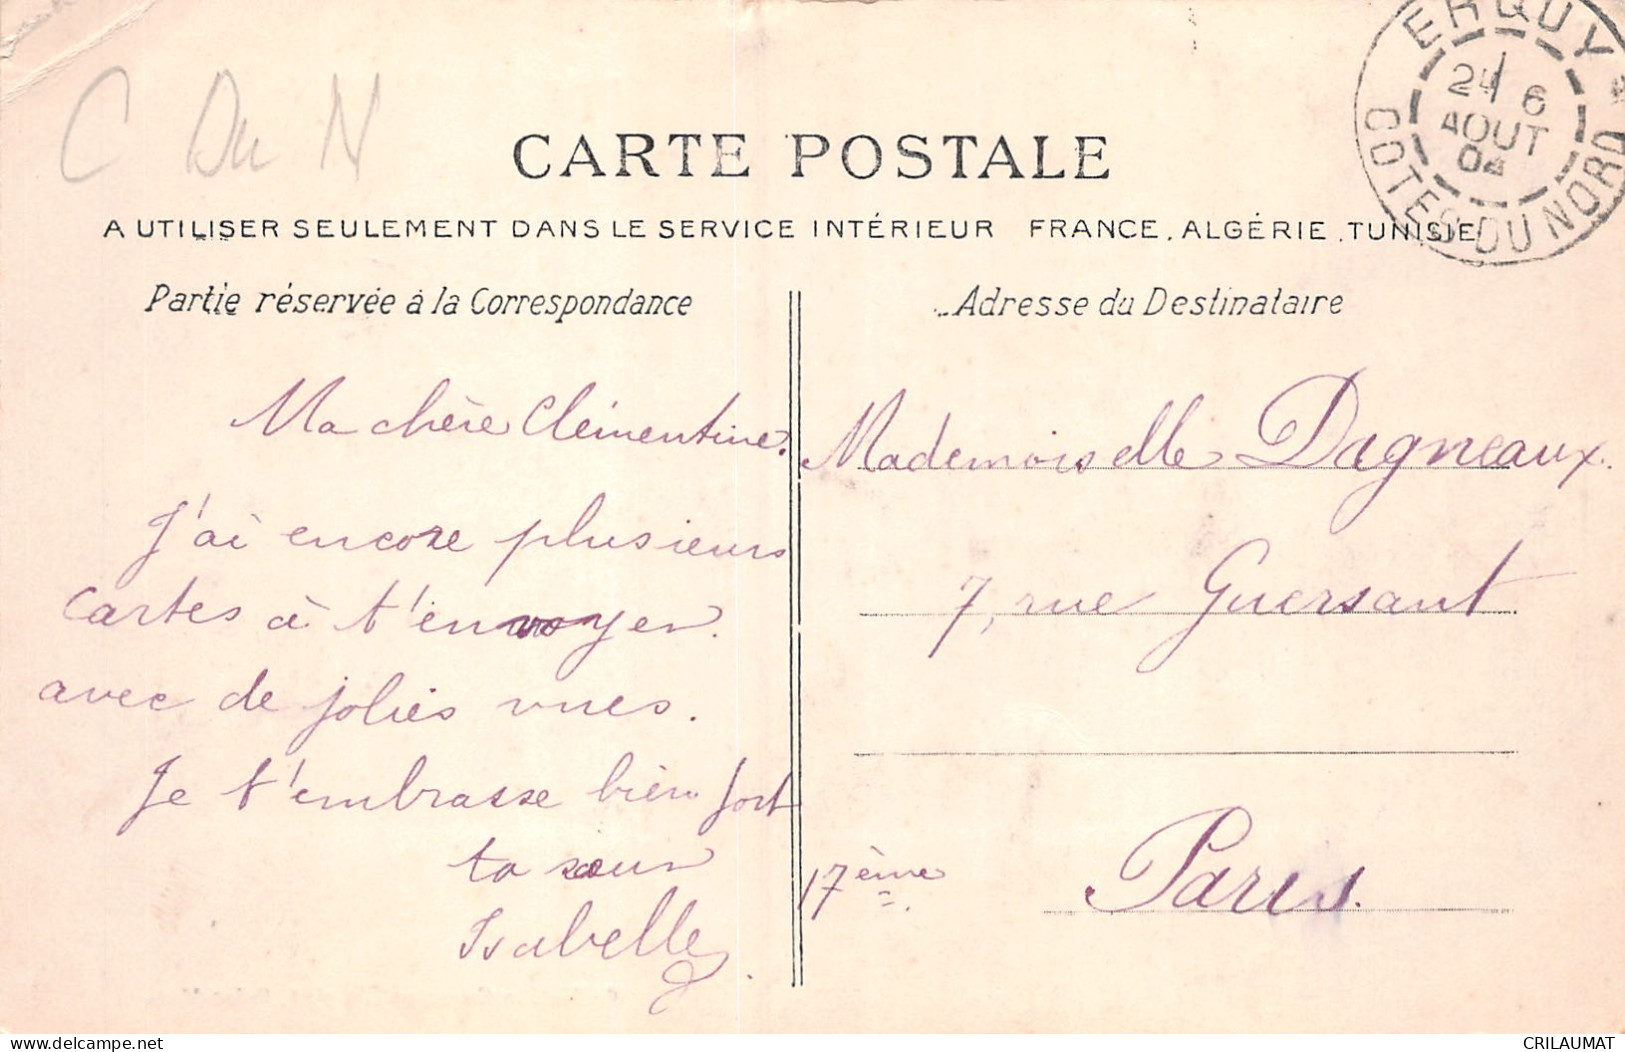 C Du N
ERQUY
24 6
AOUT
04
COTES-DU-NORD
CARTE POSTALE
A UTILISER SEULEMENT DANS LE SERVICE INTÉRIEUR FRANCE, ALGÉRIE, TUNISIE
Partie réservée à la Correspondance
Ma chère Clémentine.
J'ai encore plusieurs
cartes à t'envoyer.
avec de jolies vues.
Je t'embrasse bien fort
ta sœur
Isabelle.
Adresse du Destinataire
Mademoiselle Dagneaux.
7, rue Guersant.
17ème. Paris.
www.delcampe.net
CRILAUMAT